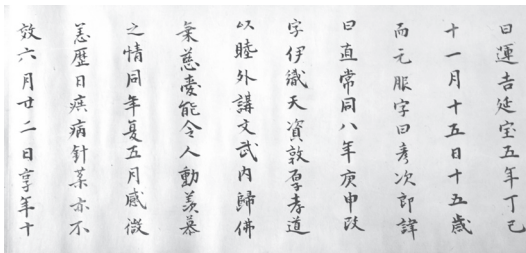 曰運吉延宝五年丁巳
十一月十五日十五歳
而元服字曰彦次郎諱
曰直常同八年庚申改
字伊織天資敦厚孝道
以睦外講文武内歸佛
乗慈愛能令人動羨慕
之情同年夏五月感微
恙歴日疾病針薬亦不
效六月廿二日享年十